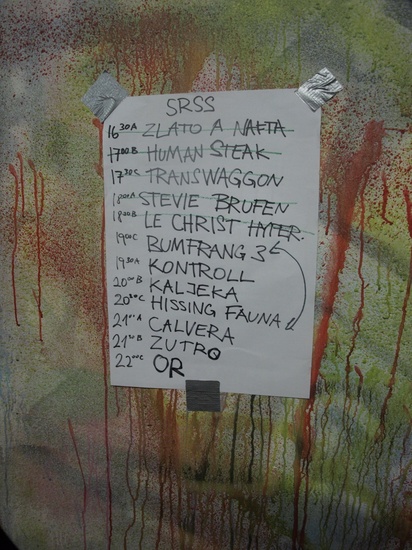 SRSS
16 30 A ZLATO A NAFTA
17 00 B HUMAN STEAK
17 30 C TRANSWAGGON
18 00 A STEVIE BRUFEN
18 00 B LE CHRIST HYPER.
19 00 C BUMFRANG 3
19 30 A KONTROLL
20 00 B KALJEKA
20 30 C HISSING FAUNA
21 00 A CALVERA
21 30 B ZUTRO
22 00 C OR